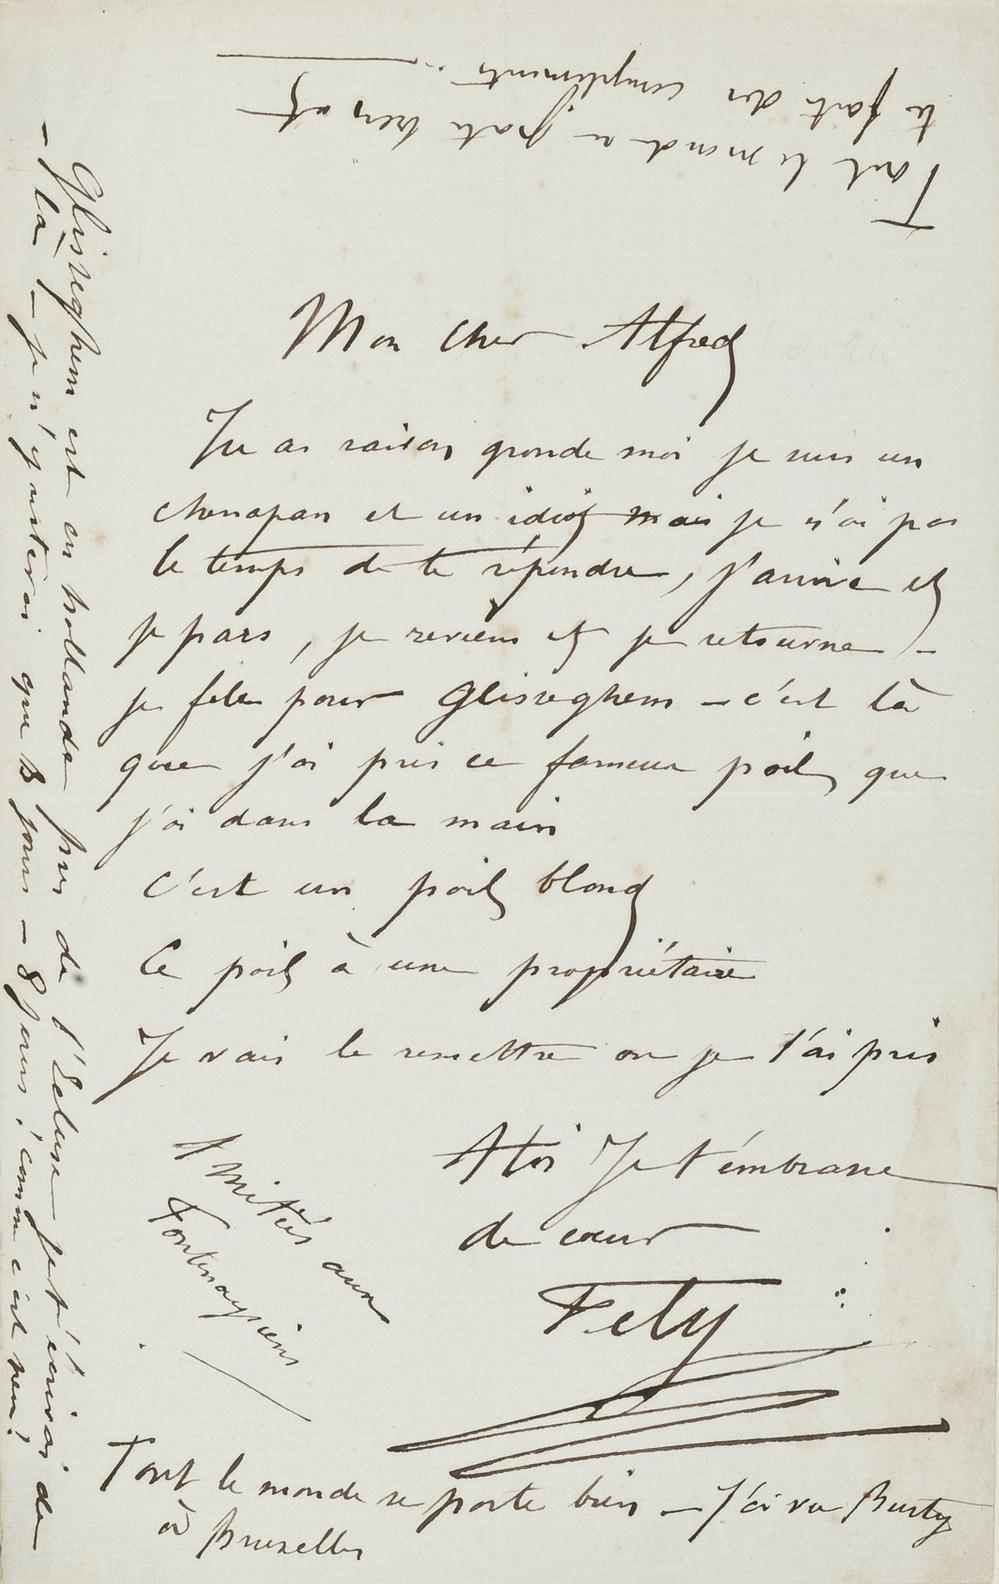 Mon cher Alfred
Tu as raison gronde moi je suis un
chenapan et un idiot mais je n'ai pas
le temps de te répondre, j'arrive et
je pars, je reviens et je retourne –
je file pour Glisseghem – c'est là
que j'ai pris ce fameux poil que
j'ai dans la main
C'est un poil blond
Ce poil à une propriétaire
Je vais le remettre ou je l'ai pris
A toi Je t'embrasse
de cœur
Fely
Amitiés aux
Fontenaysiens
Tout le monde se porte bien – J'ai vu Burty
à Bruxelles
Glisseghem est en hollande près de l'Ecluse je t'écrirai de
– là – je n'y resterai que 8 jours – 8 jours! comme c'est peu!
Tout le monde se porte bien et
te fait des compliments